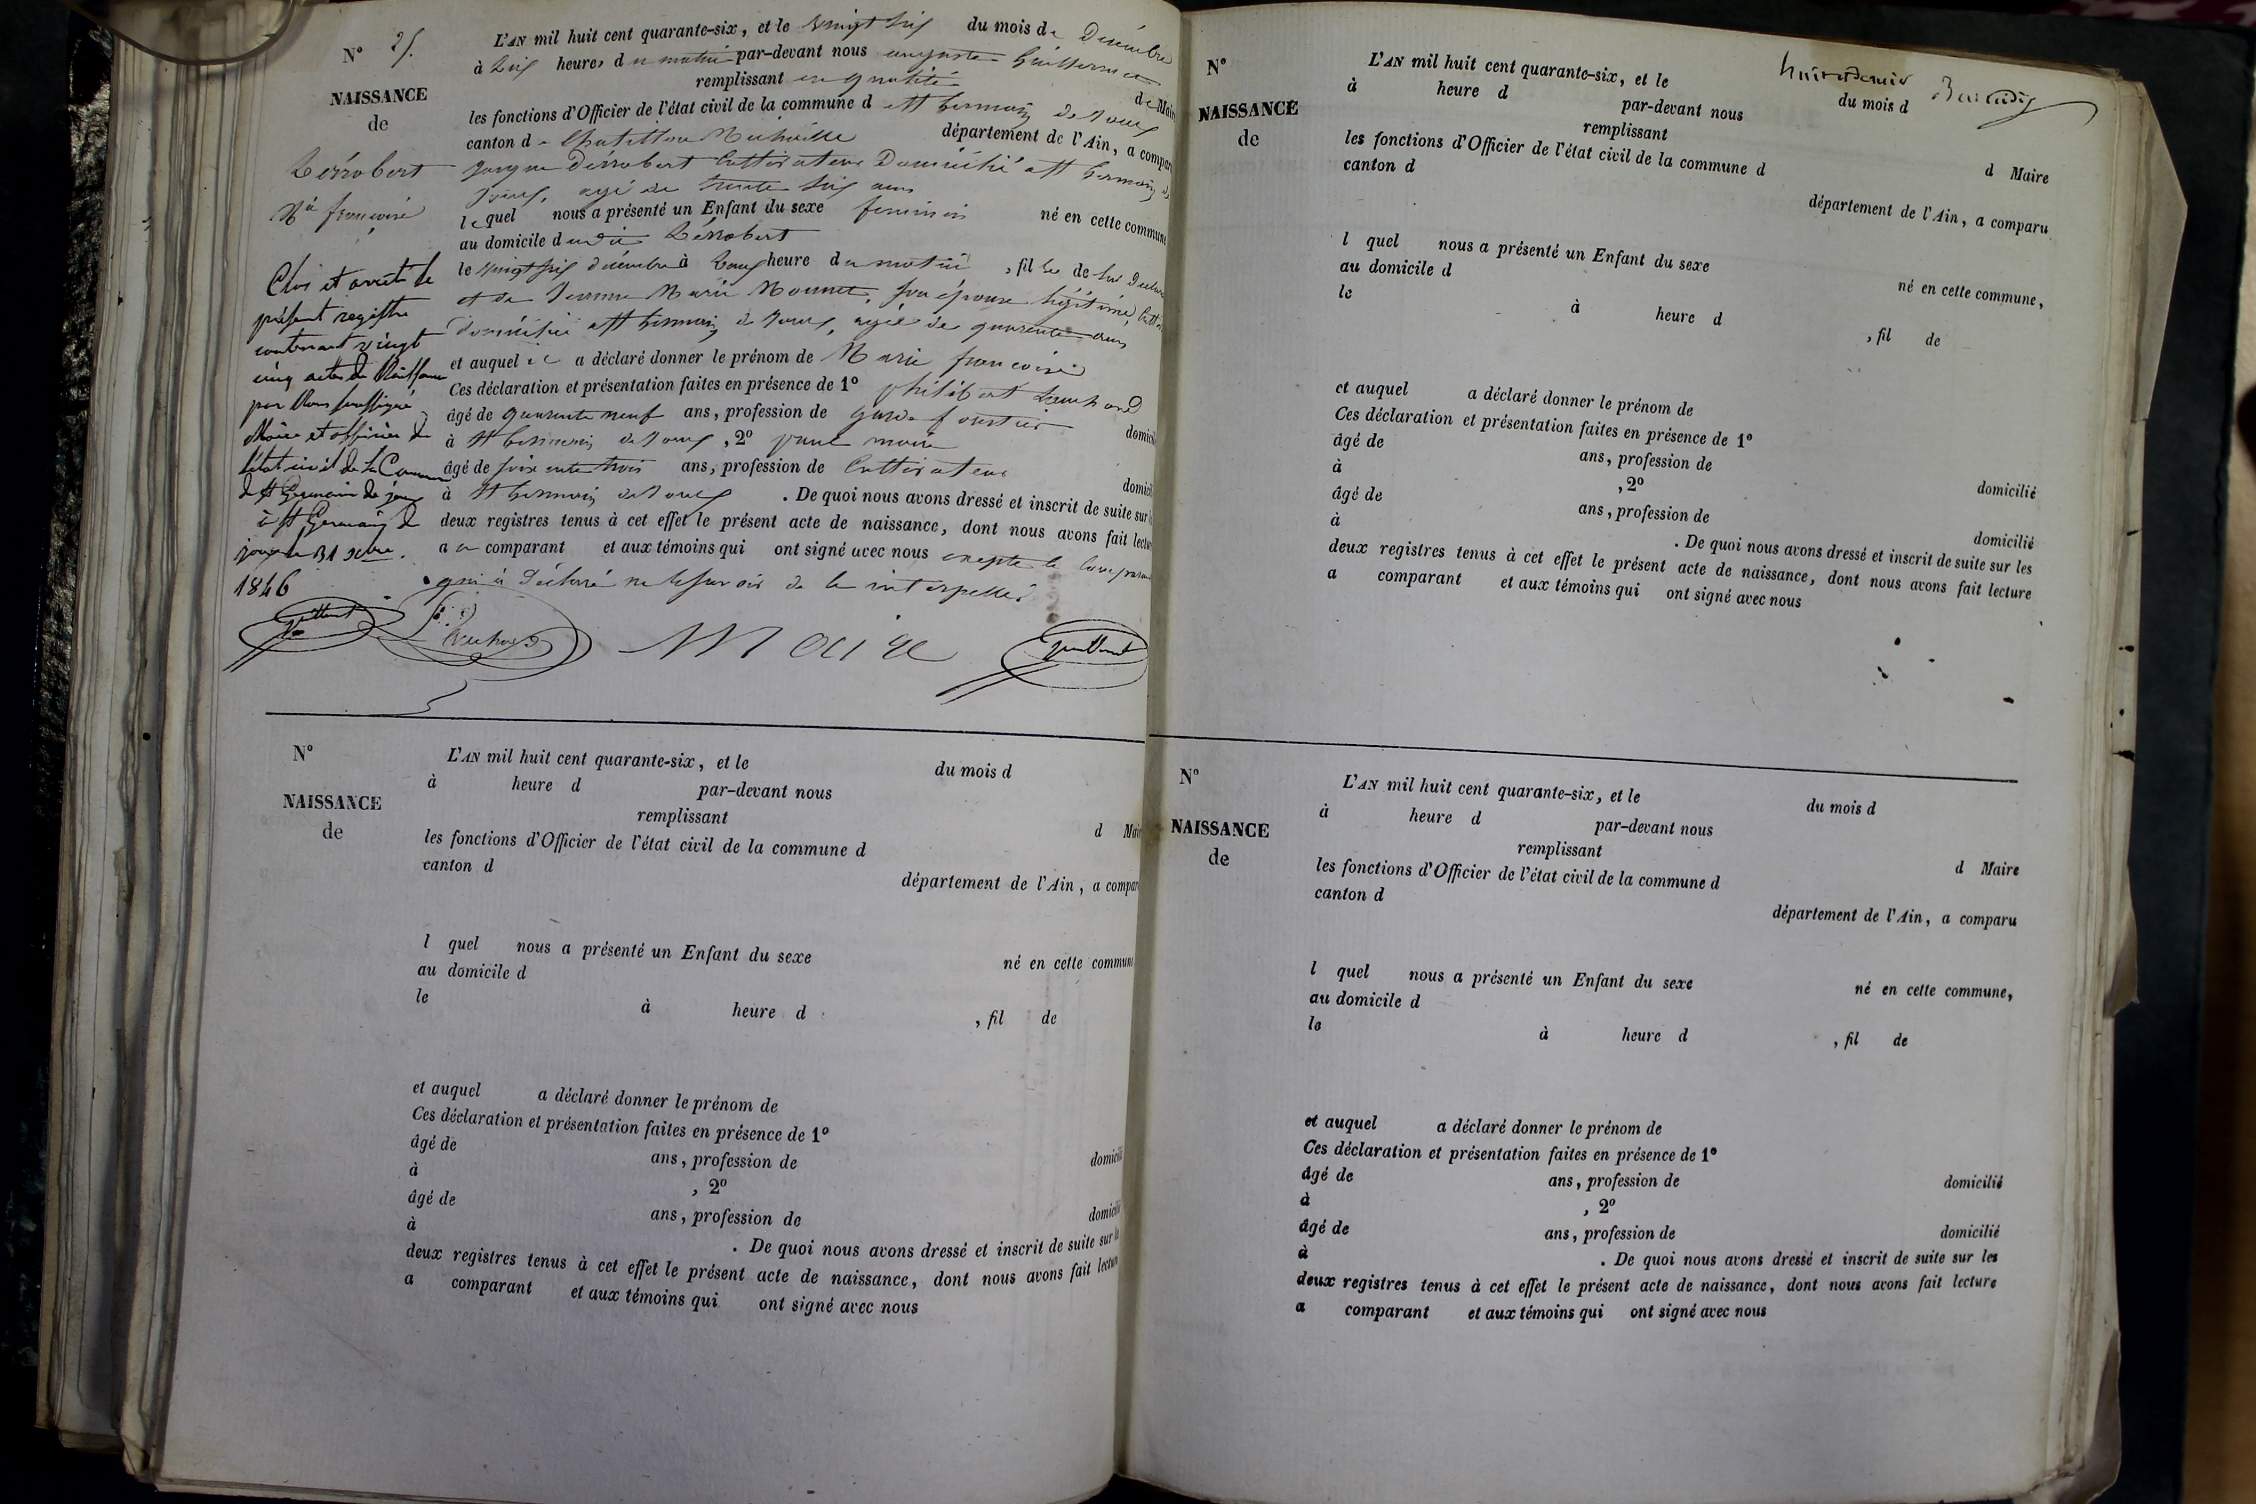 N° 25.
NAISSANCE
de
Dérobert
Mie françoise
Clos et arrêté le
présent registre
contenant vingt
cinq actes de Naissance
par Nous soussigné
Maire et officier de
l'état civil de la Commune
de St Germain de joux
à St Germain de
joux le 31 Xbre.
1846
L'AN mil huit cent quarante-six, et le vingt six du mois de Décembre
à dix heures du matin par-devant nous auguste
remplissant en qualité de Maire
les fonctions d'Officier de l'état civil de la commune d St Germain de Joux
canton de Chatillon Michaille département de l'Ain, a compar
Dérobert Cultivateur Domicilié à St Germain de
Joux, agé de trente six ans
lequel nous a présenté un Enfant du sexe feminin né en cette commune
au domicile dudit Dérobert
le vingt six décembre à heure du matin, fille de lui Déclarant
et de Jeanne Marie Monnet, son épouse légitime,
domiciliée à St Germain de Joux, agée de quarante ans
et auquel il a déclaré donner le prénom de Marie françoise
Ces déclaration et présentation faites en présence de 1° philibert
âgé de quarante neuf ans, profession de garde forestier domicilié
à St Germain de Joux, 2° maire
âgé de soixante trois ans, profession de Cultivateur domicilié
à St Germain de Joux. De quoi nous avons dressé et inscrit de suite sur les
deux registres tenus à cet effet le présent acte de naissance, dont nous avons fait lecture
au comparant et aux témoins qui ont signé avec nous excepté le Comparant
qui a déclaré ne le savoir de ce interpellé
Maire
N°
NAISSANCE
de
L'AN mil huit cent quarante-six, et le du mois d
à heure d par-devant nous
remplissant d Maire
les fonctions d'Officier de l'état civil de la commune d
canton d département de l'Ain, a compar
l quel nous a présenté un Enfant du sexe né en cette commune
au domicile d
le à heure d , fil de
et auquel a déclaré donner le prénom de
Ces déclaration et présentation faites en présence de 1°
âgé de ans, profession de domicilié
à , 2°
âgé de ans, profession de domicilié
à . De quoi nous avons dressé et inscrit de suite sur les
deux registres tenus à cet effet le présent acte de naissance, dont nous avons fait lecture
a comparant et aux témoins qui ont signé avec nous
N°
NAISSANCE
de
L'AN mil huit cent quarante-six, et le du mois d
à heure d par-devant nous
remplissant d Maire
les fonctions d'Officier de l'état civil de la commune d
canton d département de l'Ain, a comparu
l quel nous a présenté un Enfant du sexe né en cette commune,
au domicile d
le à heure d , fil de
et auquel a déclaré donner le prénom de
Ces déclaration et présentation faites en présence de 1°
âgé de ans, profession de domicilié
à , 2°
âgé de ans, profession de domicilié
à . De quoi nous avons dressé et inscrit de suite sur les
deux registres tenus à cet effet le présent acte de naissance, dont nous avons fait lecture
a comparant et aux témoins qui ont signé avec nous
N°
NAISSANCE
de
L'AN mil huit cent quarante-six, et le du mois d
à heure d par-devant nous
remplissant d Maire
les fonctions d'Officier de l'état civil de la commune d
canton d département de l'Ain, a comparu
l quel nous a présenté un Enfant du sexe né en cette commune,
au domicile d
le à heure d , fil de
et auquel a déclaré donner le prénom de
Ces déclaration et présentation faites en présence de 1°
âgé de ans, profession de domicilié
à , 2°
âgé de ans, profession de domicilié
à . De quoi nous avons dressé et inscrit de suite sur les
deux registres tenus à cet effet le présent acte de naissance, dont nous avons fait lecture
a comparant et aux témoins qui ont signé avec nous